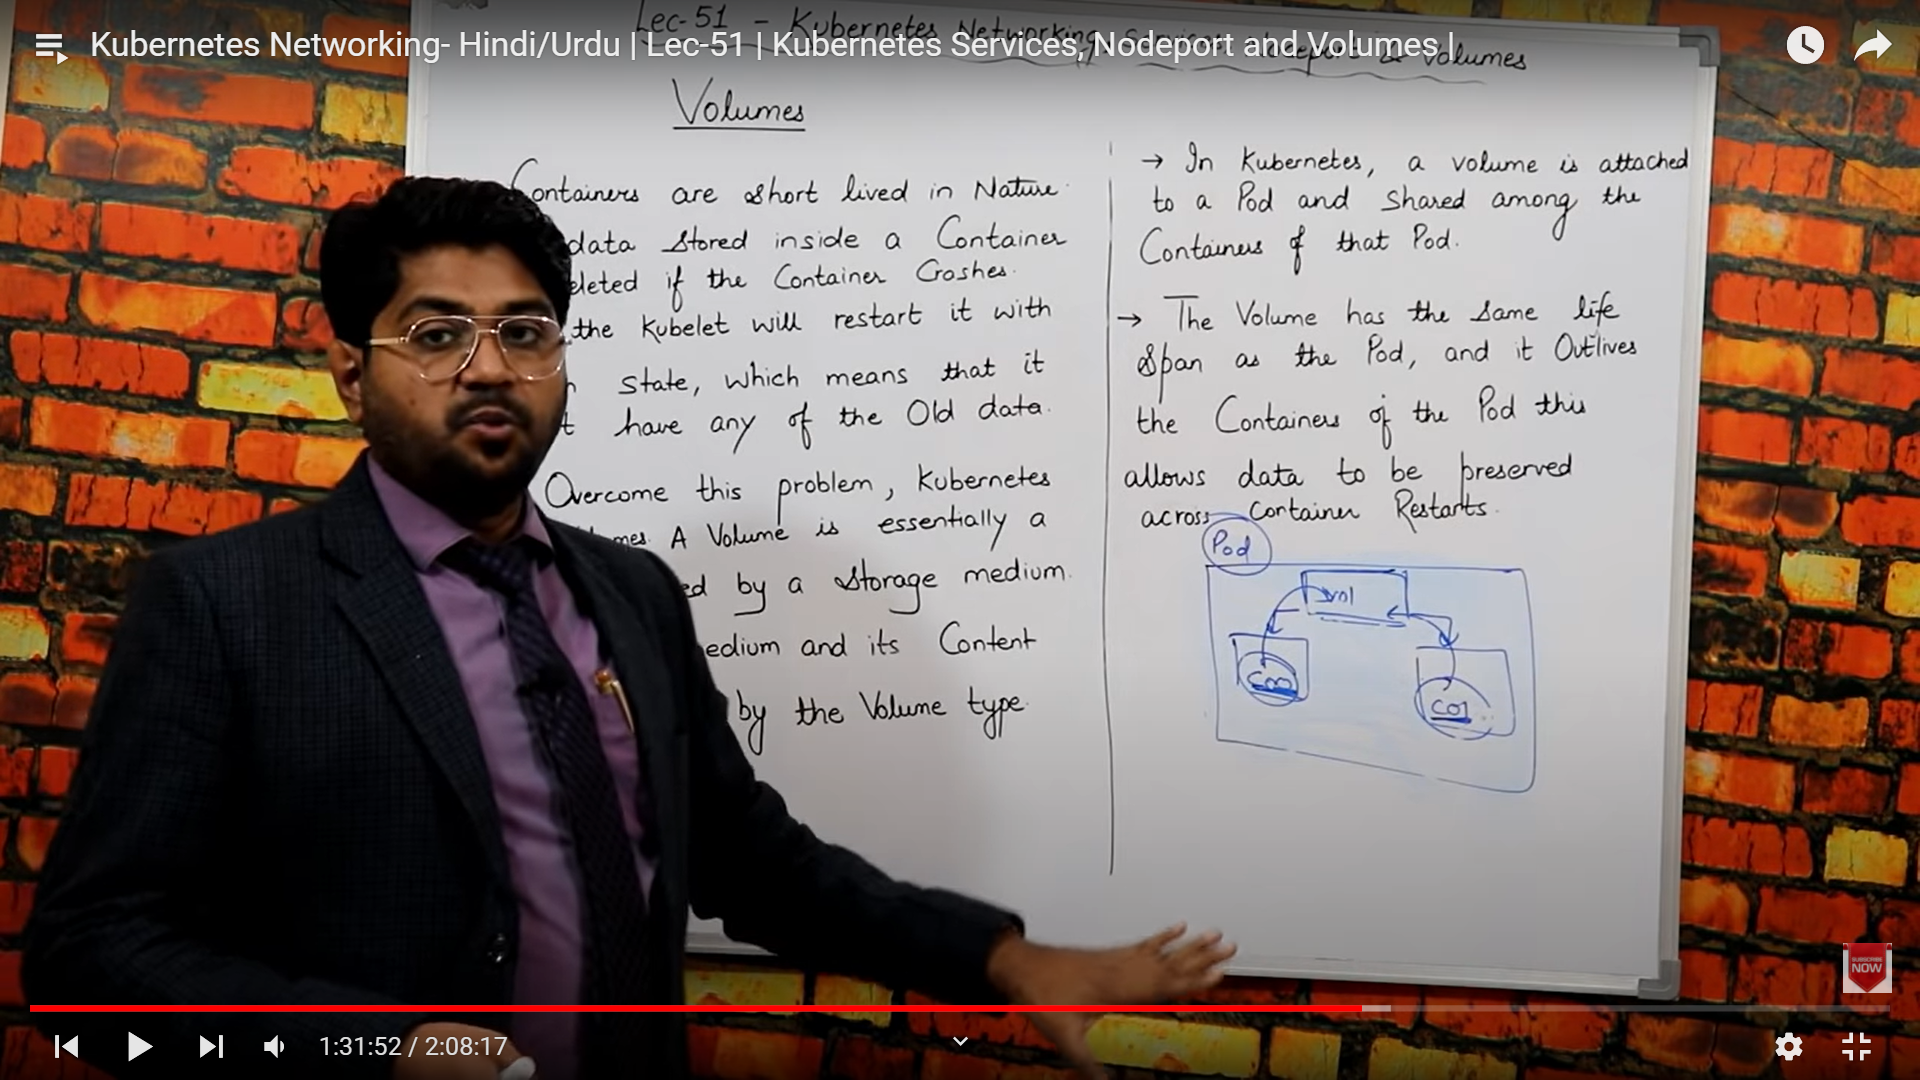 Lec-51 - Kubernetes Networking, Services, Nodeport & Volumes
Kubernetes Networking- Hindi/Urdu | Lec-51 | Kubernetes Services, Nodeport and Volumes |
Volumes
Containers are short lived in Nature.
data stored inside a Container
eleted if the Container Crashes.
the Kubelet will restart it with
n state, which means that it
t have any of the Old data.
Overcome this problem, Kubernetes
mes. A Volume is essentially a
ed by a storage medium.
edium and its Content
by the Volume type.
→ In Kubernetes, a volume is attached
to a Pod and shared among the
Containers of that Pod.
→ The Volume has the same life
span as the Pod, and it Outlives
the Containers of the Pod this
allows data to be preserved
across Container Restarts.
Pod
vol
C00
C01
SUBSCRIBE
NOW
1:31:52 / 2:08:17